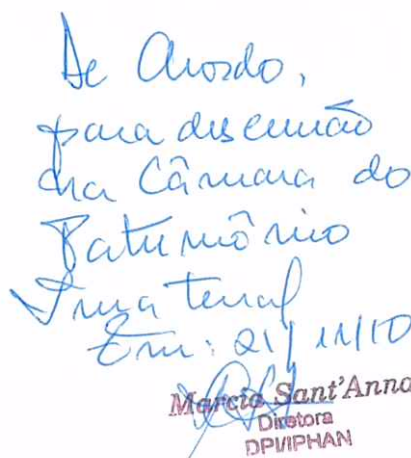 De Acordo,
para discussão
na Câmara do
Patrimônio
Imaterial
Em: 21/11/10
Marcia Sant'Anna
Diretora
DPI/IPHAN